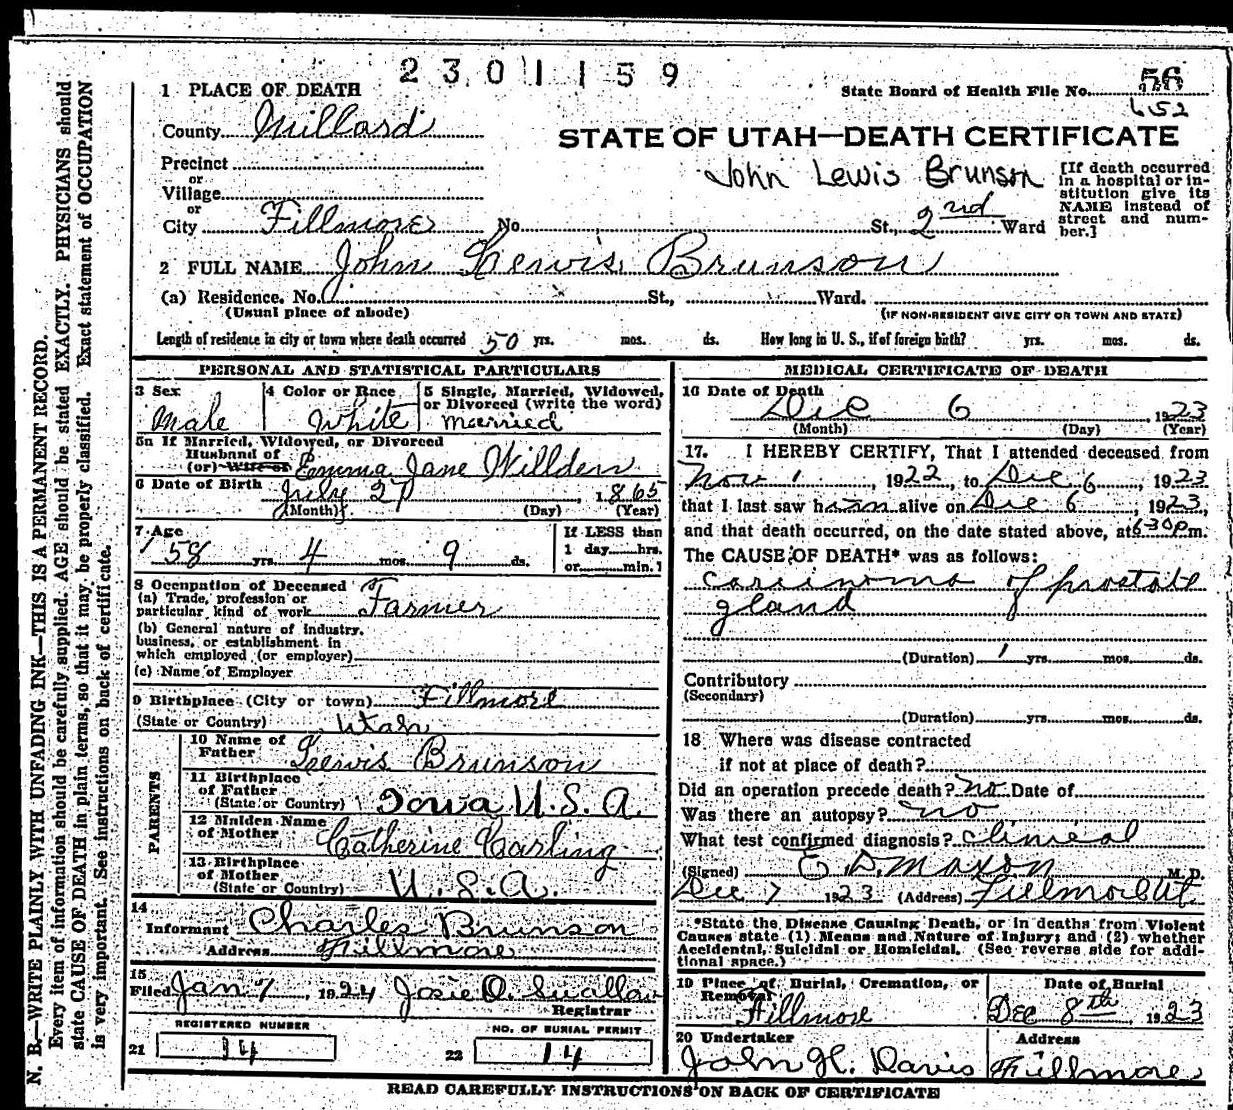 2301159
1 PLACE OF DEATH
State Board of Health File No. 56
652
County Millard
STATE OF UTAH—DEATH CERTIFICATE
Precinct
or
Village
or
City Fillmore No. St., 2nd Ward
John Lewis Brunson
[If death occurred
in a hospital or in-
stitution give its
NAME instead of
street and num-
ber.]
2 FULL NAME John Lewis Brunson
(a) Residence. No. St., Ward.
(Usual place of abode) (IF NON-RESIDENT GIVE CITY OR TOWN AND STATE)
Length of residence in city or town where death occurred 50 yrs. mos. ds. How long in U. S., if of foreign birth? yrs. mos. ds.
PERSONAL AND STATISTICAL PARTICULARS
3 Sex 4 Color or Race 5 Single, Married, Widowed,
or Divorced (write the word)
Male White married
5a If Married, Widowed, or Divorced
Husband of
(or) Wife of Emma Jane Willden
6 Date of Birth July 27, 1865
(Month) (Day) (Year)
7 Age
58 yrs. 4 mos. 9 ds.
If LESS than
1 day hrs.
or min.
8 Occupation of Deceased
(a) Trade, profession or
particular kind of work Farmer
(b) General nature of industry,
business, or establishment in
which employed (or employer)
(c) Name of Employer
9 Birthplace (City or town) Fillmore
(State or Country) Utah
PARENTS
10 Name of
Father Lewis Brunson
11 Birthplace
of Father
(State or Country) Iowa U.S.A.
12 Maiden Name
of Mother Catherine Carling
13 Birthplace
of Mother
(State or Country) U.S.A.
14
Informant Charles Brunson
Address Fillmore
15
Filed Jan 7, 1924 Josie O. Swallow
Registrar
REGISTERED NUMBER NO. OF BURIAL PERMIT
21 14 22 14
MEDICAL CERTIFICATE OF DEATH
16 Date of Death
Dec 6 1923
(Month) (Day) (Year)
17. I HEREBY CERTIFY, That I attended deceased from
Nov 1, 1922, to Dec 6, 1923
that I last saw him alive on Dec 6, 1923,
and that death occurred, on the date stated above, at 6:30 p.m.
The CAUSE OF DEATH* was as follows:
carcinoma of prostate
gland
(Duration) 1 yrs. mos. ds.
Contributory
(Secondary)
(Duration) yrs. mos. ds.
18 Where was disease contracted
if not at place of death?
Did an operation precede death? no Date of
Was there an autopsy? no
What test confirmed diagnosis? clinical
(Signed) E. D. Maxon M. D.
Dec 7 1923 (Address) Fillmore Ut.
*State the Disease Causing Death, or in deaths from Violent
Causes state (1) Means and Nature of Injury; and (2) whether
Accidental, Suicidal or Homicidal. (See reverse side for addi-
tional space.)
19 Place of Burial, Cremation, or
Removal Date of Burial
Fillmore Dec 8th, 1923
20 Undertaker Address
John H. Davis Fillmore
READ CAREFULLY INSTRUCTIONS ON BACK OF CERTIFICATE
N. B.—WRITE PLAINLY WITH UNFADING INK—THIS IS A PERMANENT RECORD.
Every item of information should be carefully supplied. AGE should be stated EXACTLY. PHYSICIANS should
state CAUSE OF DEATH in plain terms, so that it may be properly classified. Exact statement of OCCUPATION
is very important. See instructions on back of certificate.